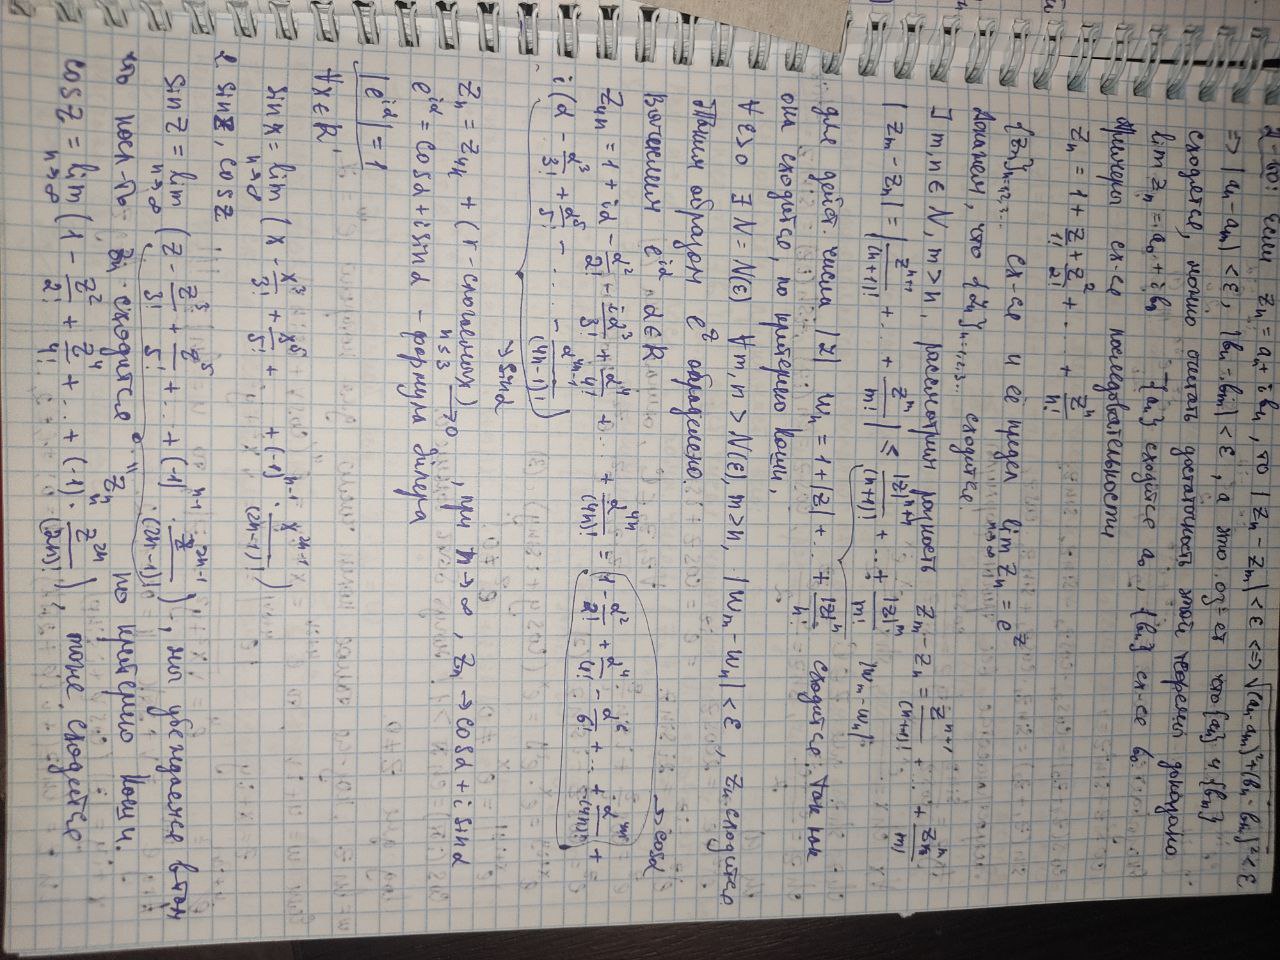 Д-во: если zₙ = aₙ + i bₙ, то |zₙ - zₘ| < ε <=> √((aₙ-aₘ)² + (bₙ-bₘ)²) < ε
=> |aₙ - aₘ| < ε, |bₙ - bₘ| < ε, а это озн-ет что {aₙ} и {bₙ}
сходятся, можно считать достаточность этой теоремы доказано
lim zₙ = a₀ + i b₀ {aₙ} сходится a₀, {bₙ} сх-ся b₀
Примеры сх-ся последовательности
zₙ = 1 + z/1! + z²/2! + ... + zⁿ/n!
{zₙ}n=1,2,3... сх-ся и её предел lim n→∞ zₙ = e^z
Докажем, что {zₙ}n=1,2,3... сходится.
] m,n ∈ N, m>n, рассмотрим разность zₘ - zₙ = z^(n+1)/(n+1)! + ... + z^m/m!
|zₘ - zₙ| = |z^(n+1)/(n+1)! + ... + z^m/m!| ≤ |z|^(n+1)/(n+1)! + ... + |z|^m/m! |wₘ - wₙ|
для действ. числа |z| wₙ = 1 + |z| + ... + |z|ⁿ/n! сходится. Так как
она сходится, по критерию Коши,
∀ ε>0 ∃ N = N(ε) ∀ m,n > N(ε), m>n, |wₘ - wₙ| < ε, zₙ сходится
Таким образом e^z определено.
Вычислим e^(iα), α ∈ R
z₄ₙ = 1 + iα - α²/2! - iα³/3! + α⁴/4! + ... + α^(4n)/(4n)! = 1 - α²/2! + α⁴/4! - α⁶/6! + ... + α^(4n)/(4n)! + → cosα
i(α - α³/3! + α⁵/5! - ... - α^(4n-1)/(4n-1)!) → sinα
zₙ = z₄ₖ + (r-слагаемых) r≤3 →0, при n→∞, zₙ → cosα + i sinα
e^(iα) = cosα + i sinα - формула Эйлера
|e^(iα)| = 1
∀x ∈ R¹
sin x = lim n→∞ (x - x³/3! + x⁵/5! + ... + (-1)^(n-1) · x^(2n-1)/(2n-1)!)
2. sin z, cos z
sin z = lim n→∞ (z - z³/3! + z⁵/5! + ... + (-1)^(n-1) · z^(2n-1)/(2n-1)!), убеждаемся в том
что посл-ть zₙ сходится по критерию Коши.
cos z = lim n→∞ (1 - z²/2! + z⁴/4! + ... + (-1)ⁿ · z^(2n)/(2n)!) тоже сходится